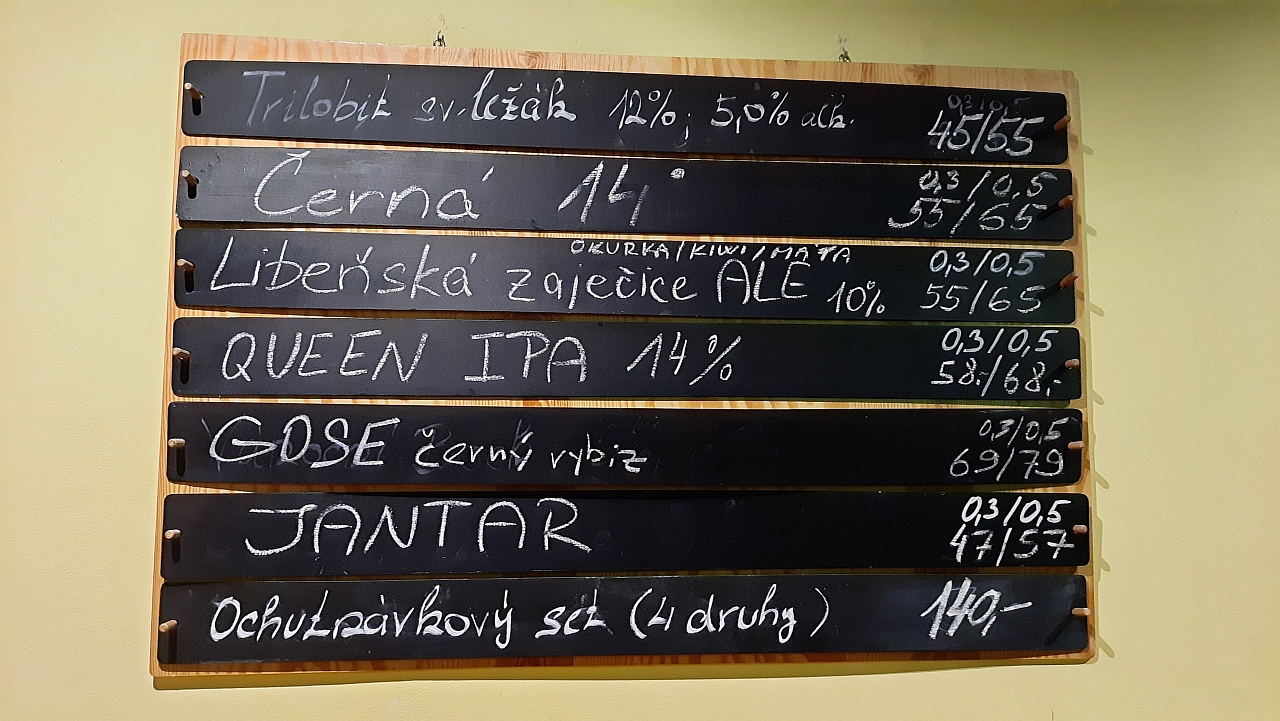 Trilobit sv. ležák 12%; 5,0% alk. 0,3/0,5
45/55
Černá 14° 0,3/0,5
55/65
OKURKA/KIWI/MÁTA
Libeňská zaječice ALE 10% 0,3/0,5
55/65
QUEEN IPA 14% 0,3/0,5
58.-/68,-
GOSE černý rybiz 0,3/0,5
69/79
JANTAR 0,3/0,5
47/57
Ochutnávkový set (4 druhy) 140,-